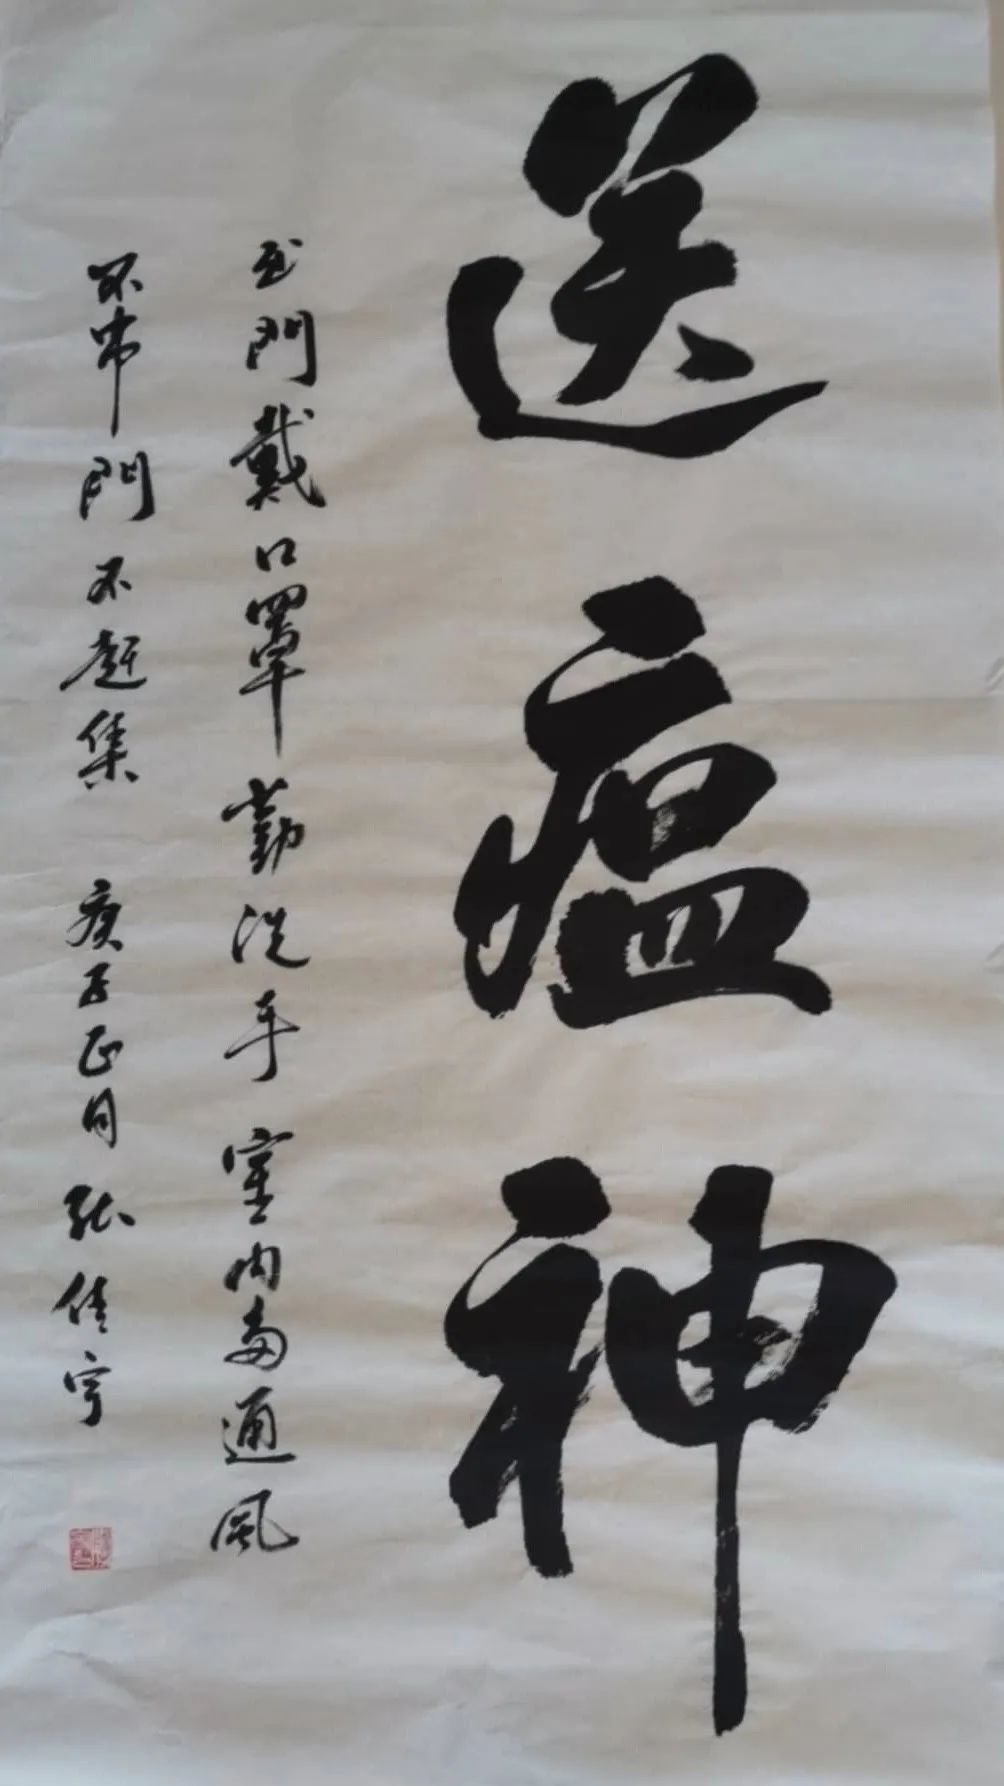 送瘟神
出門戴口罩勤洗手室内多通風
不串門不赶集 庚子正月 张